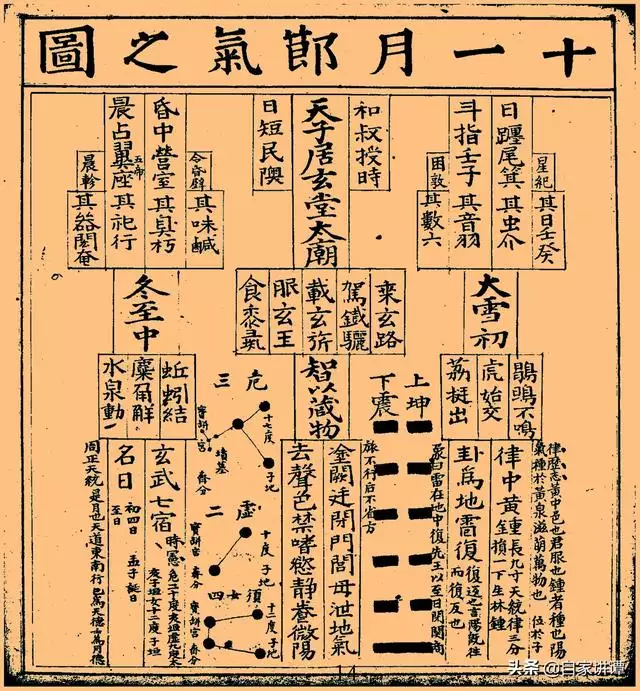 十一月節氣之圖
星紀
其日壬癸
日躔尾箕其虫介
斗指壬子其音羽
困敦
其數六
和叔授時
天子居玄堂太廟
日短民隩
其味鹹
昏中營室其臭朽
晨占翼座其祀行
五帝
晨軫
其器閎奄
大雪初
鶡鴠不鳴
虎始交
荔挺出
乘玄路
駕鐵驪
載玄旂
服玄玉
食黍彘
智以藏物
冬至中
蚯蚓結
麋角解
水泉動
律歷志黃中色也君服也鍾者種也陽
氣種於黃泉滋萌萬物也
位於子
律中黃鍾長九寸天統律三分
損一下生林鍾
卦為地雷復
而復反也
上坤
下震
彖曰雷在地中復先王以至日閉關商
旅不行后不省方
金闕廷閉門閭毋泄地氣
去聲色禁嗜慾靜養微陽
危
三
十七度
子地
墳墓
虛
二
十度
子地
須
女四
十二度
子地
寶瓶宮
齊分
玄武七宿
名日
初四日
至日
孟子誕日
周正天統
是月也天道東南行